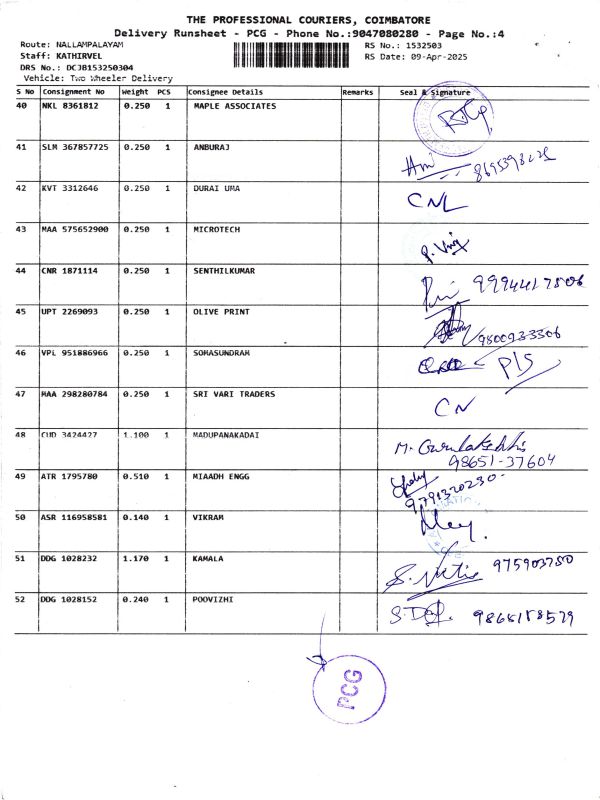 THE PROFESSIONAL COURIERS, COIMBATORE
Delivery Runsheet - PCG - Phone No.:9047080280 - Page No.:4
Route: NALLAMPALAYAM RS No.: 1532503
Staff: KATHIRVEL RS Date: 09-Apr-2025
DRS No.: DCJB153250304
Vehicle: Two Wheeler Delivery
S No Consignment No Weight PCS Consignee Details Remarks Seal & Signature
40 NKL 8361812 0.250 1 MAPLE ASSOCIATES
41 SLM 367857725 0.250 1 ANBURAJ
42 KVT 3312646 0.250 1 DURAI UMA CNL
43 MAA 575652900 0.250 1 MICROTECH
44 CNR 1871114 0.250 1 SENTHILKUMAR 9994417806
45 UPT 2269093 0.250 1 OLIVE PRINT 9500933306
46 VPL 951886966 0.250 1 SOMASUNDRAM P/S
47 MAA 298280784 0.250 1 SRI VARI TRADERS CN
48 CUD 3424427 1.100 1 MADUPANAKADAI
98651-37604
49 ATR 1795780 0.510 1 MIAADH ENGG
9791320230
50 ASR 116958581 0.140 1 VIKRAM
51 DDG 1028232 1.170 1 KAMALA 975903750
52 DDG 1028152 0.240 1 POOVIZHI
PCG